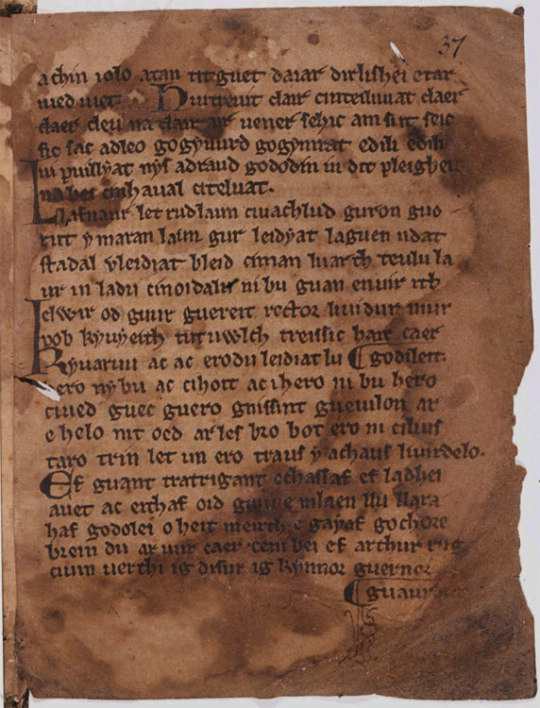 37
achin iolo atan titguet daiar dirlishei etar
med met Huitreuit clair cinteiluuat claer
claer cleu na clair air uener sehic am sut seic
sic sac adleo gogyuurd gogymrat edili edili
ui puillyat nys adraud gododin in dit pleigheit
na bei cinhaual citeluat.
Llafnaur let rud laun ciuachlud guron guo
rut y maran laun gur leidyat laguen udat
stadal vleidiat bleid ciman luarth teulu la
ur in ladu cinoidalu ni bu guan enuir ith
elwir od guur guereit rector liuidur mur
pob kyuyeith tut tuwlch treissic hair caer
Ryuaruu ac ac erodu leidiatlu godileit.
hero ny bu ac cihoit ac i hero ni bu hero
ciued guec guero gnissint gueuilon ar
e helo nit oed ar les bro bot ero ni cilius
taro trin let un ero traus y achaus liuirdelo.
Ef guant tratrigant echassaf ef ladhei
auet ac eithaf oid guiu e mlaen llu llara
haf godolei o heit meirch e gayaf gochore
brein du ar uur caer ceni bei ef arthur rug
ciuin uerthi ig disur ig kynnor guernor
guaur